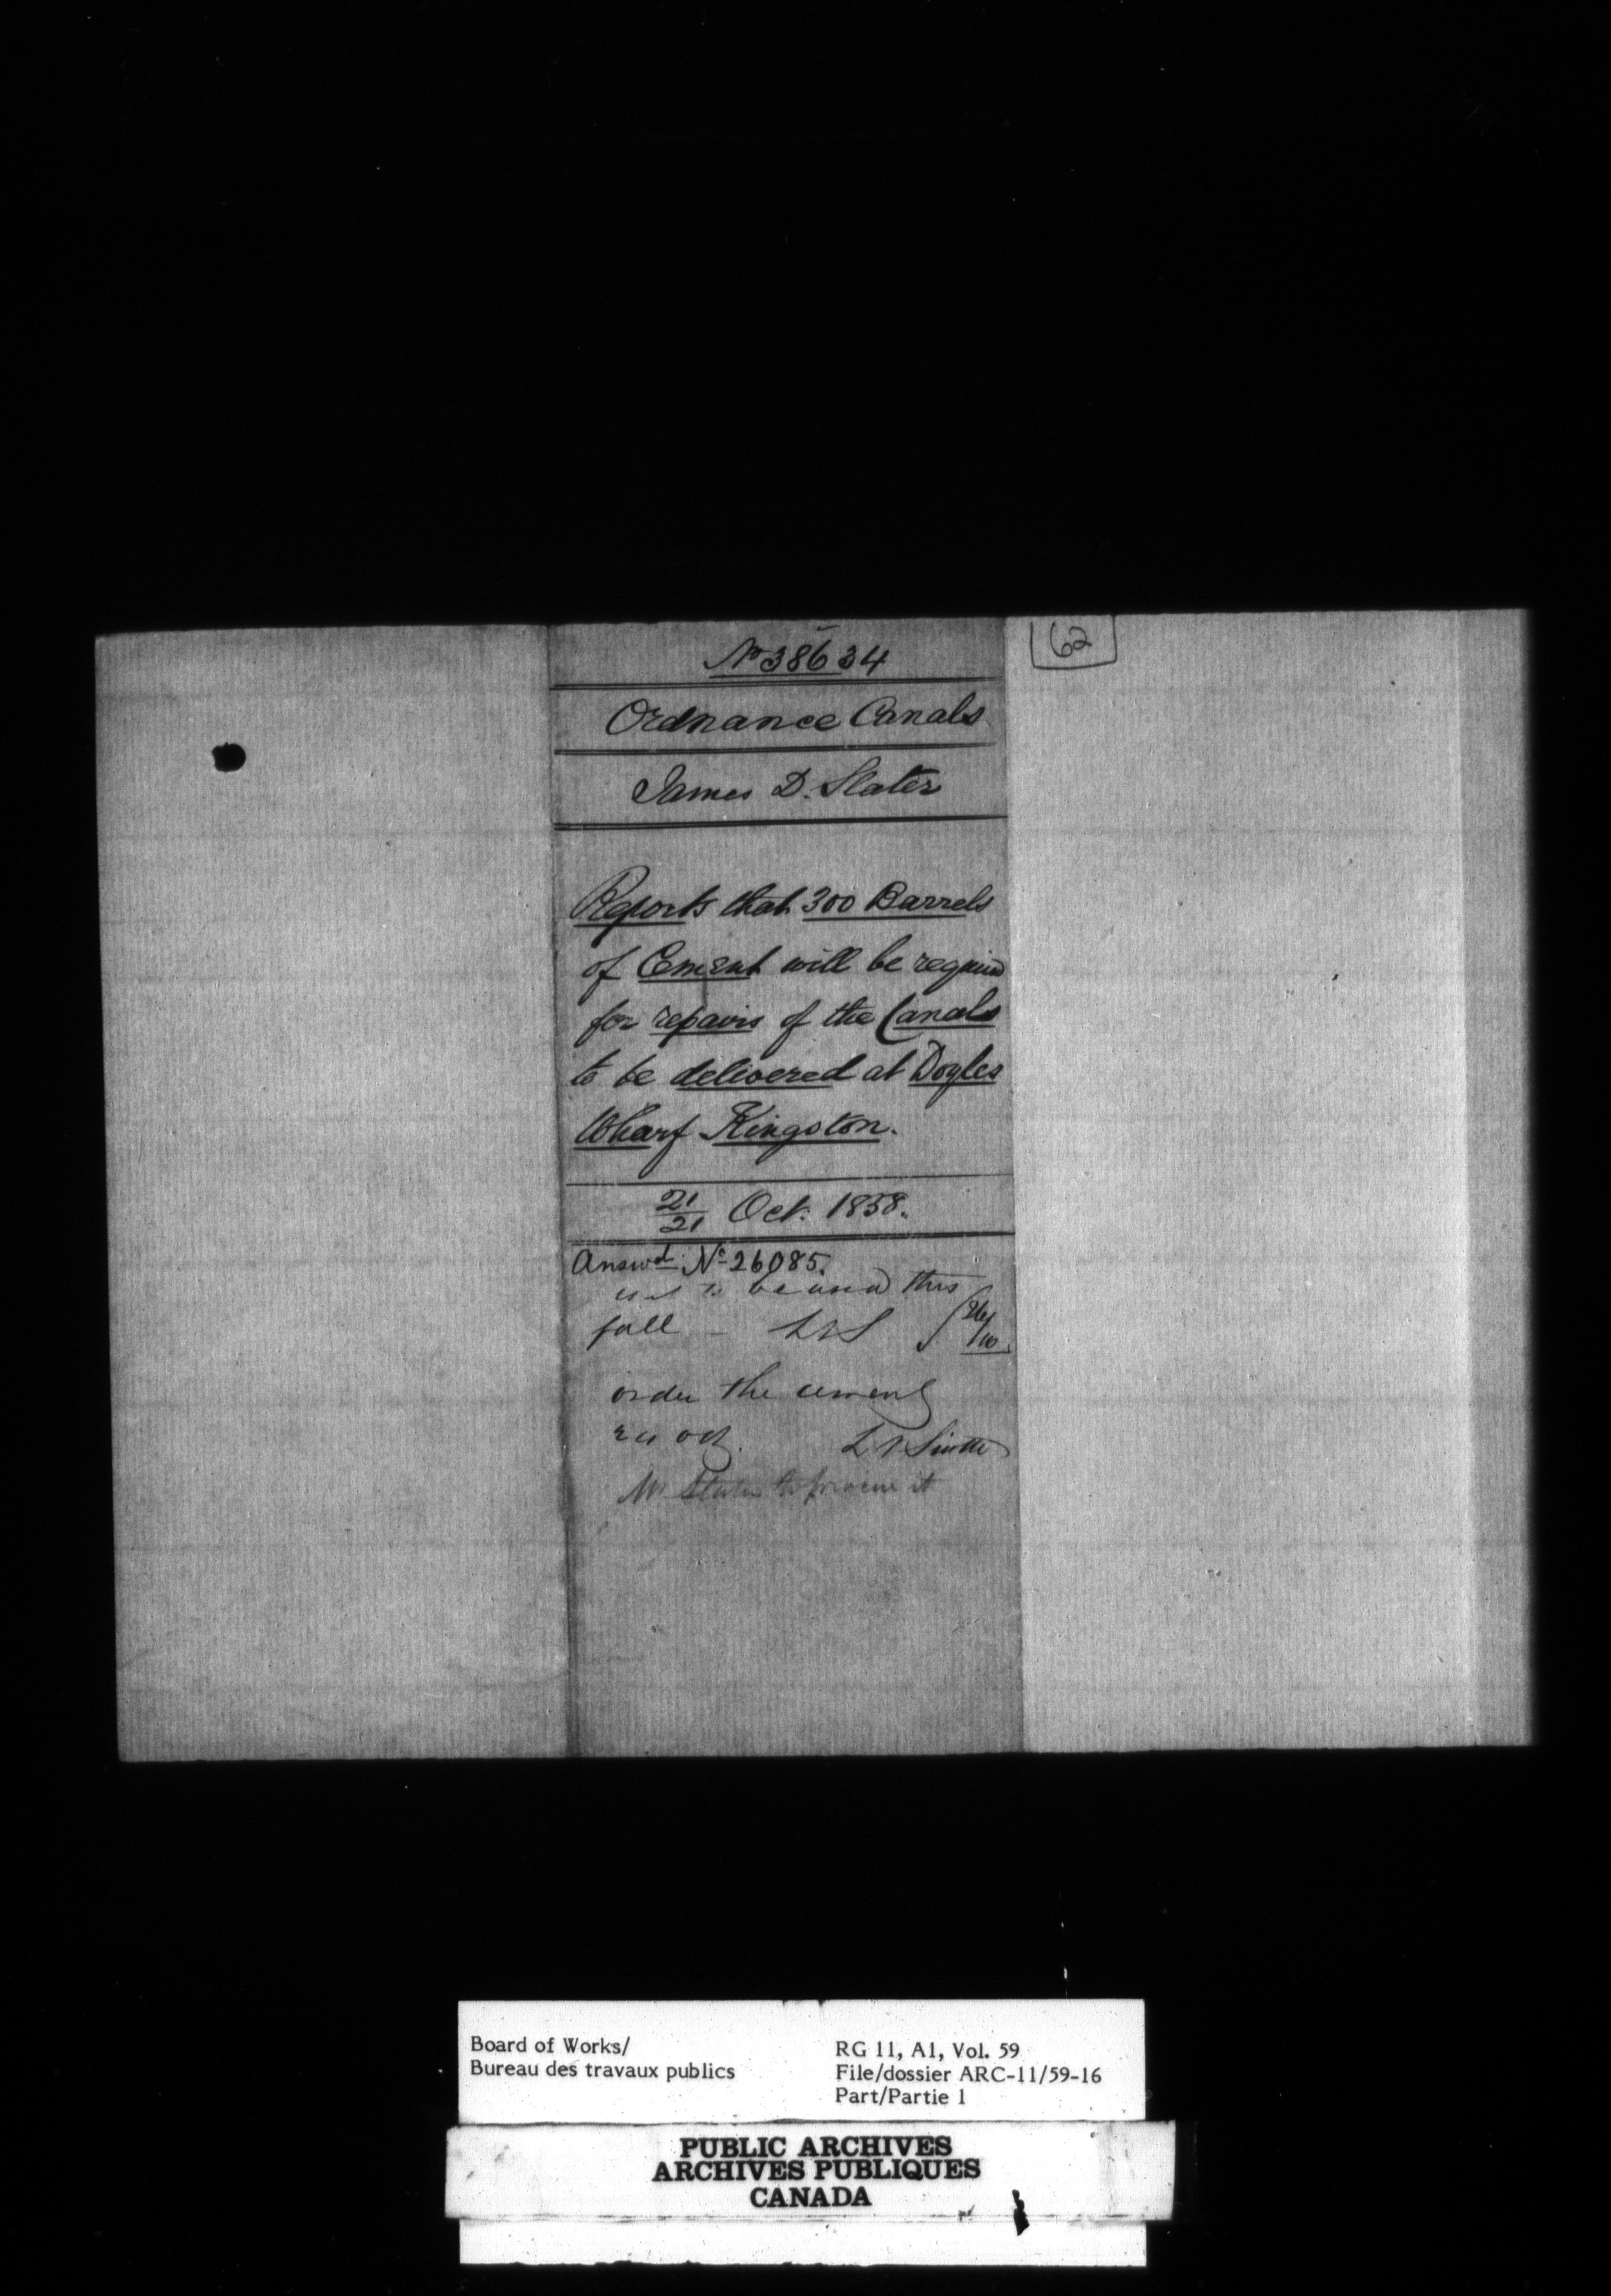 62
No 38634
Ordnance Canals
James D. Slater
Reports that 300 Barrels
of Cement will be required
for repairs of the Canals
to be delivered at Doyles
Wharf Kingston.
21/21 Oct. 1858.
Answd. No 26085.
to be used this
fall 26/10
order the cement
oct.
Mr Slater to procure it
Board of Works/
Bureau des travaux publics
RG 11, A1, Vol. 59
File/dossier ARC-11/59-16
Part/Partie 1
PUBLIC ARCHIVES
ARCHIVES PUBLIQUES
CANADA